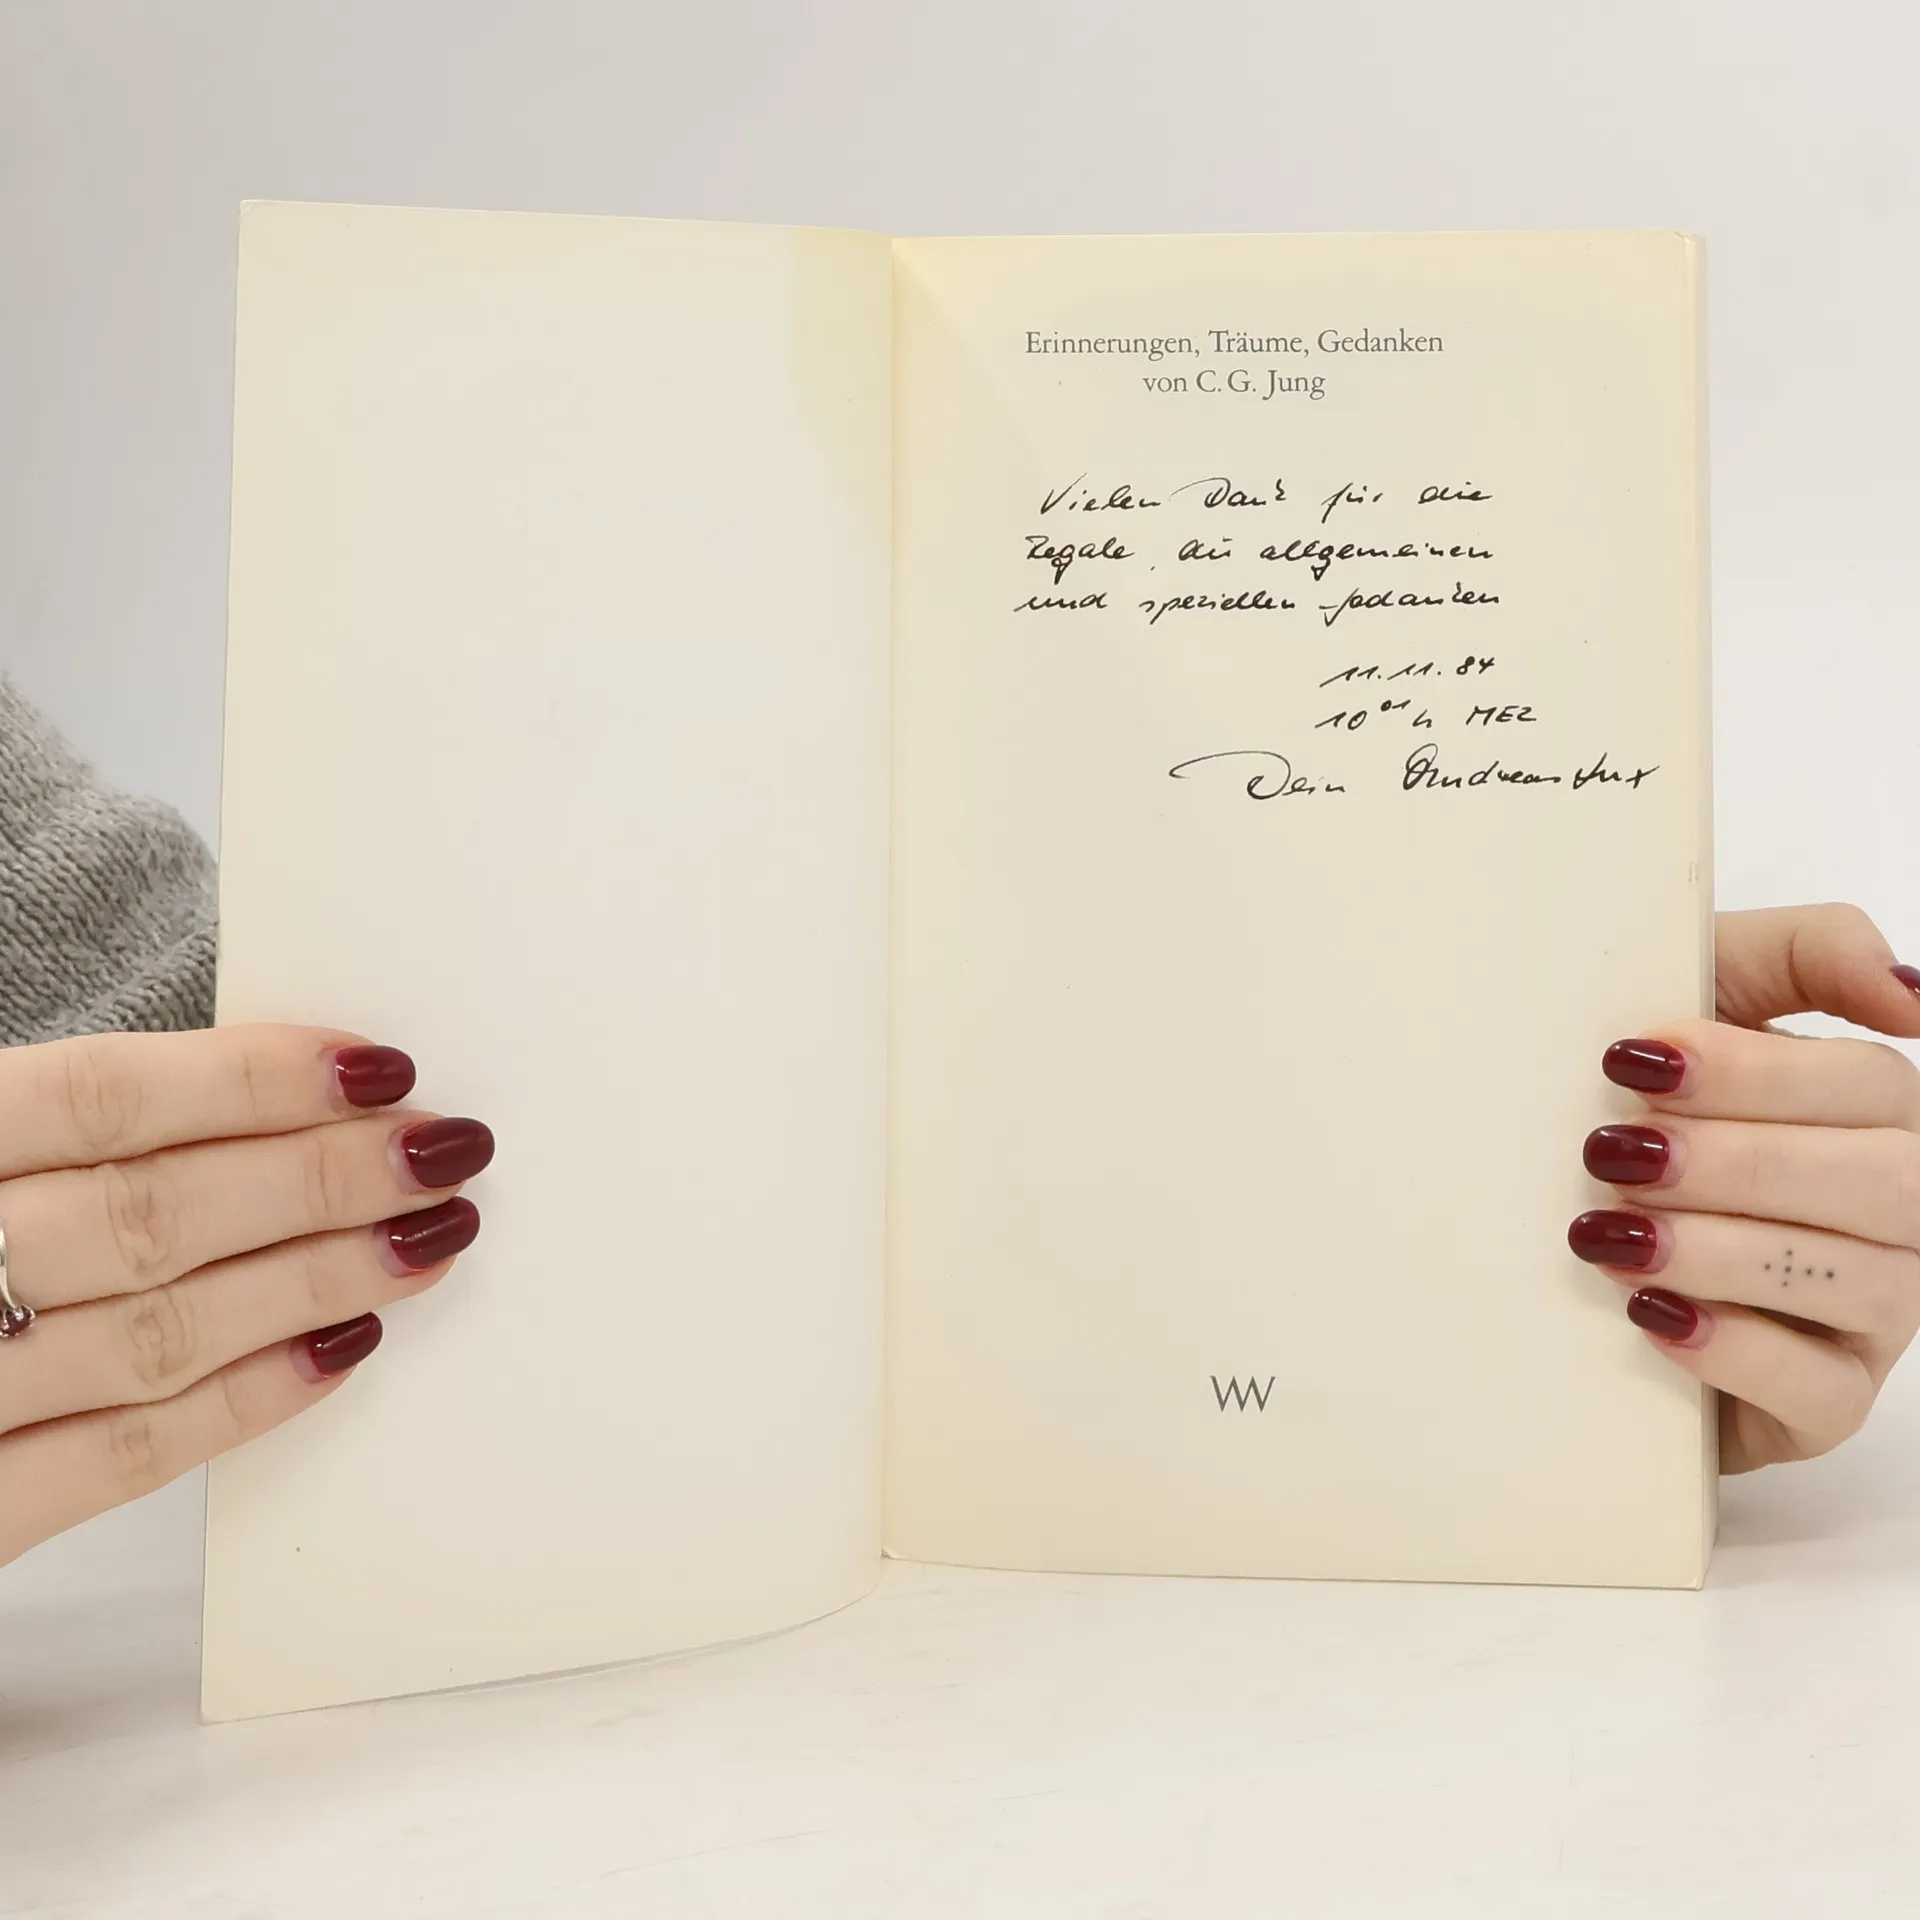 Erinnerungen, Träume, Gedanken
von C. G. Jung
Vielen Dank für die
Regale, die allgemeinen
und speziellen Gedanken
11.11.84
10⁰¹ h MEZ
Dein Andreas